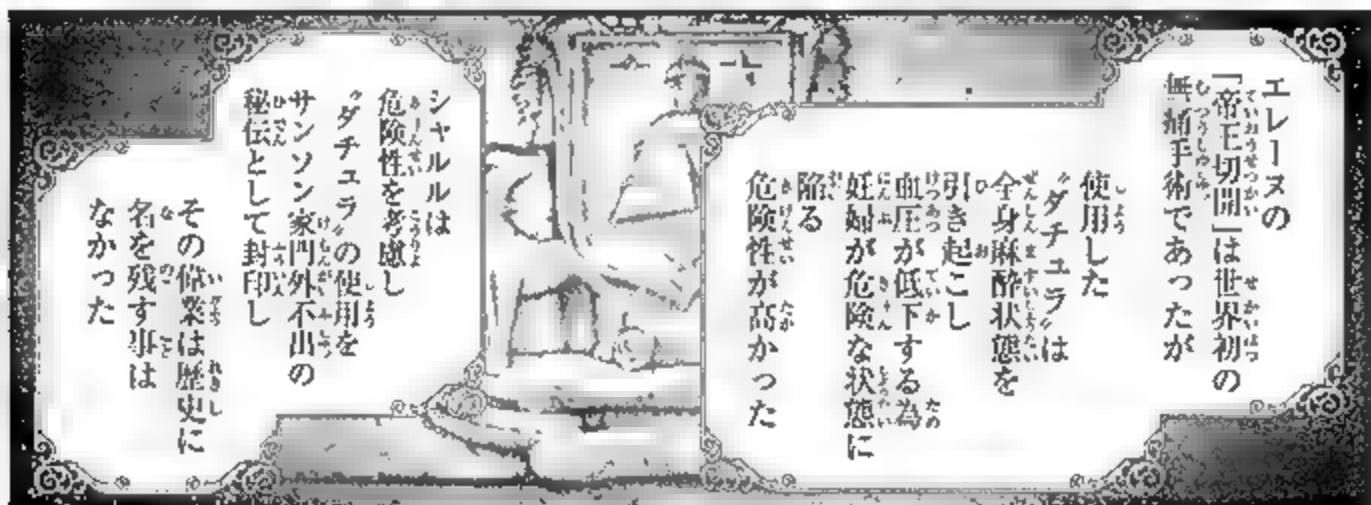 エレーヌの
「帝王切開」は世界初の
無痛手術であったが
使用した
“ダチュラ”は
全身麻酔状態を
引き起こし
血圧が低下する為
妊婦が危険な状態に
陥る
危険性が高かった
シャルルは
危険性を考慮し
“ダチュラ”の使用を
サンソン家門外不出の
秘伝として封印し
その偉業は歴史に
名を残す事は
なかった